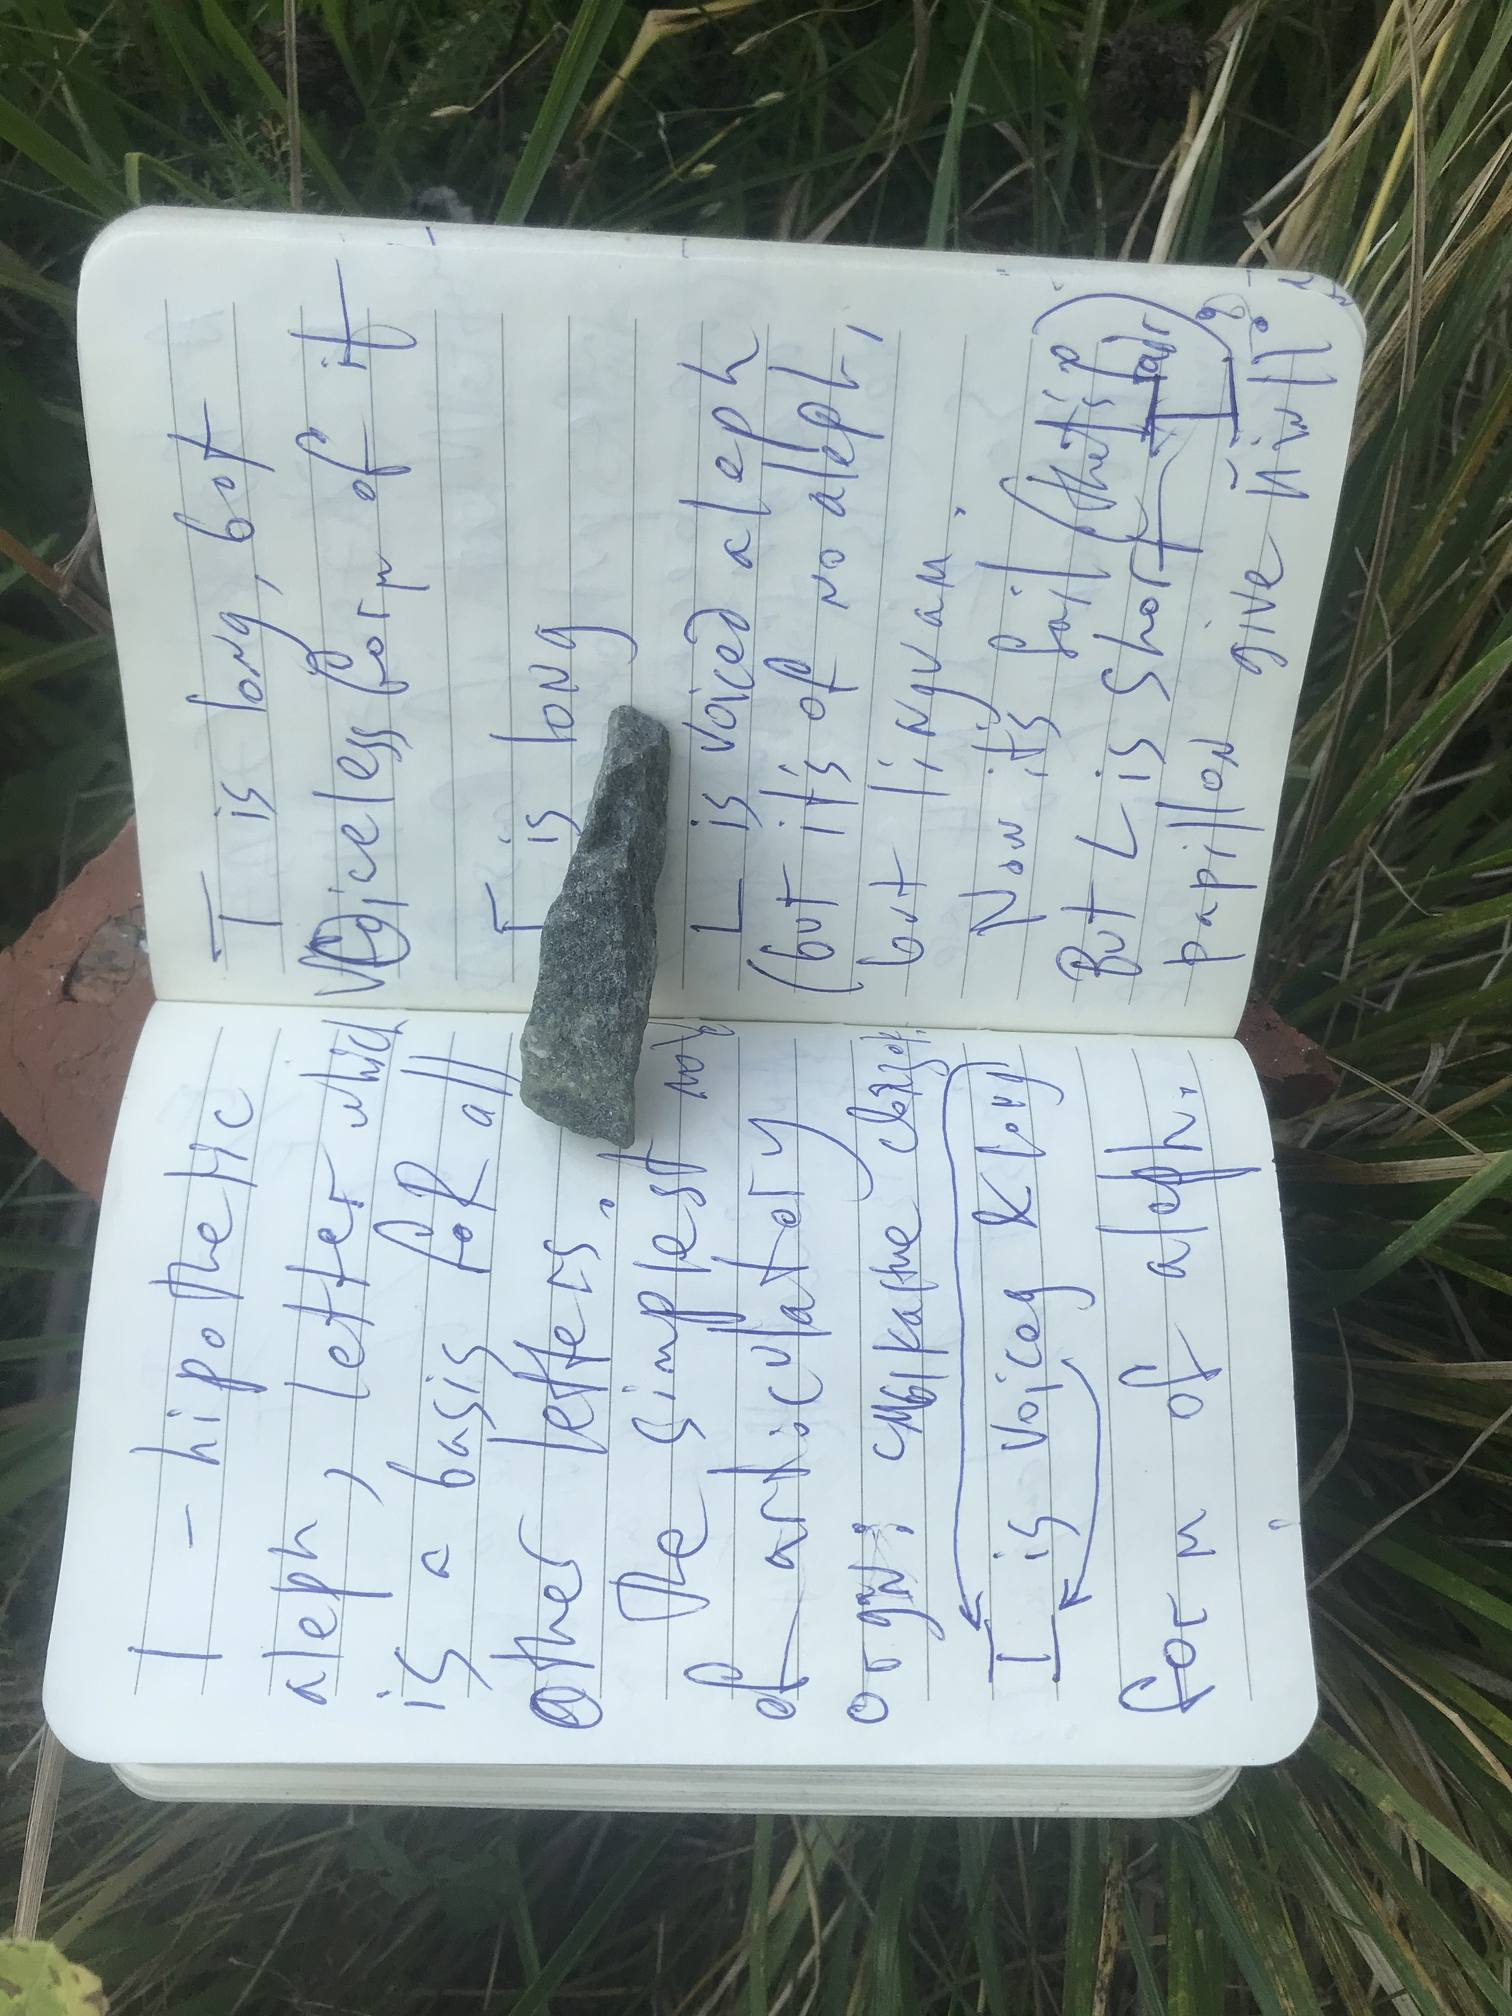 I - hipothetic
aleph, letter which
is a basis for all
other letters.
The simplest mov
of articulatory
orgn: смыкание связок.
I is voiced & long
form of aleph.
T is long, bot
voiceless form of it
Γ is long
L is voiced aleph
(but it's of no aleph,
but lingvam.
Now it's fail
But L is short
papillon give